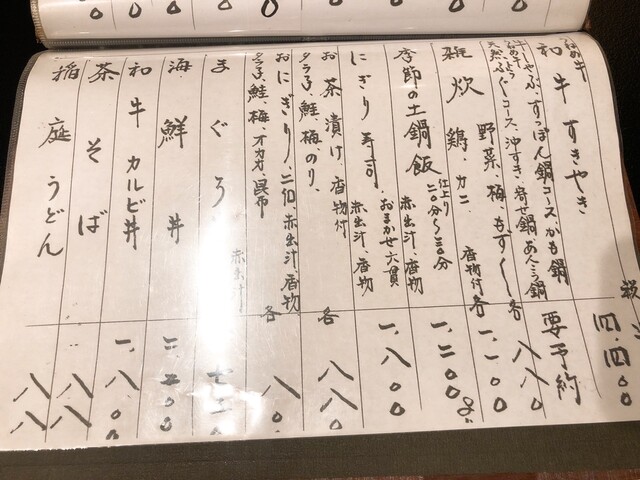 和牛すきやき 四.四〇〇
牛しゃぶ、すっぽん鍋コース、かも鍋
天然ふぐコース、沖すき、寄せ鍋、あんこう鍋 要予約
野菜、梅、もずく 各 八八〇
雑炊 鶏、カニ 香物付 各 一.一〇〇
季節の土鍋飯 仕上り二〇分〜三〇分 赤出汁、香物 一.二〇〇より
にぎり寿司 おまかせ六貫 赤出汁、香物 一.八〇〇
お茶漬け、香物付 各 八八〇
タラ子、鮭、梅、のり、
おにぎり、二個、赤出汁、香物 各 八〇
タラ子、鮭、梅、オカカ、昆布
まぐろ 赤出汁
海鮮丼
和牛カルビ丼 一.八〇
茶そば 八八
稲庭うどん 八八